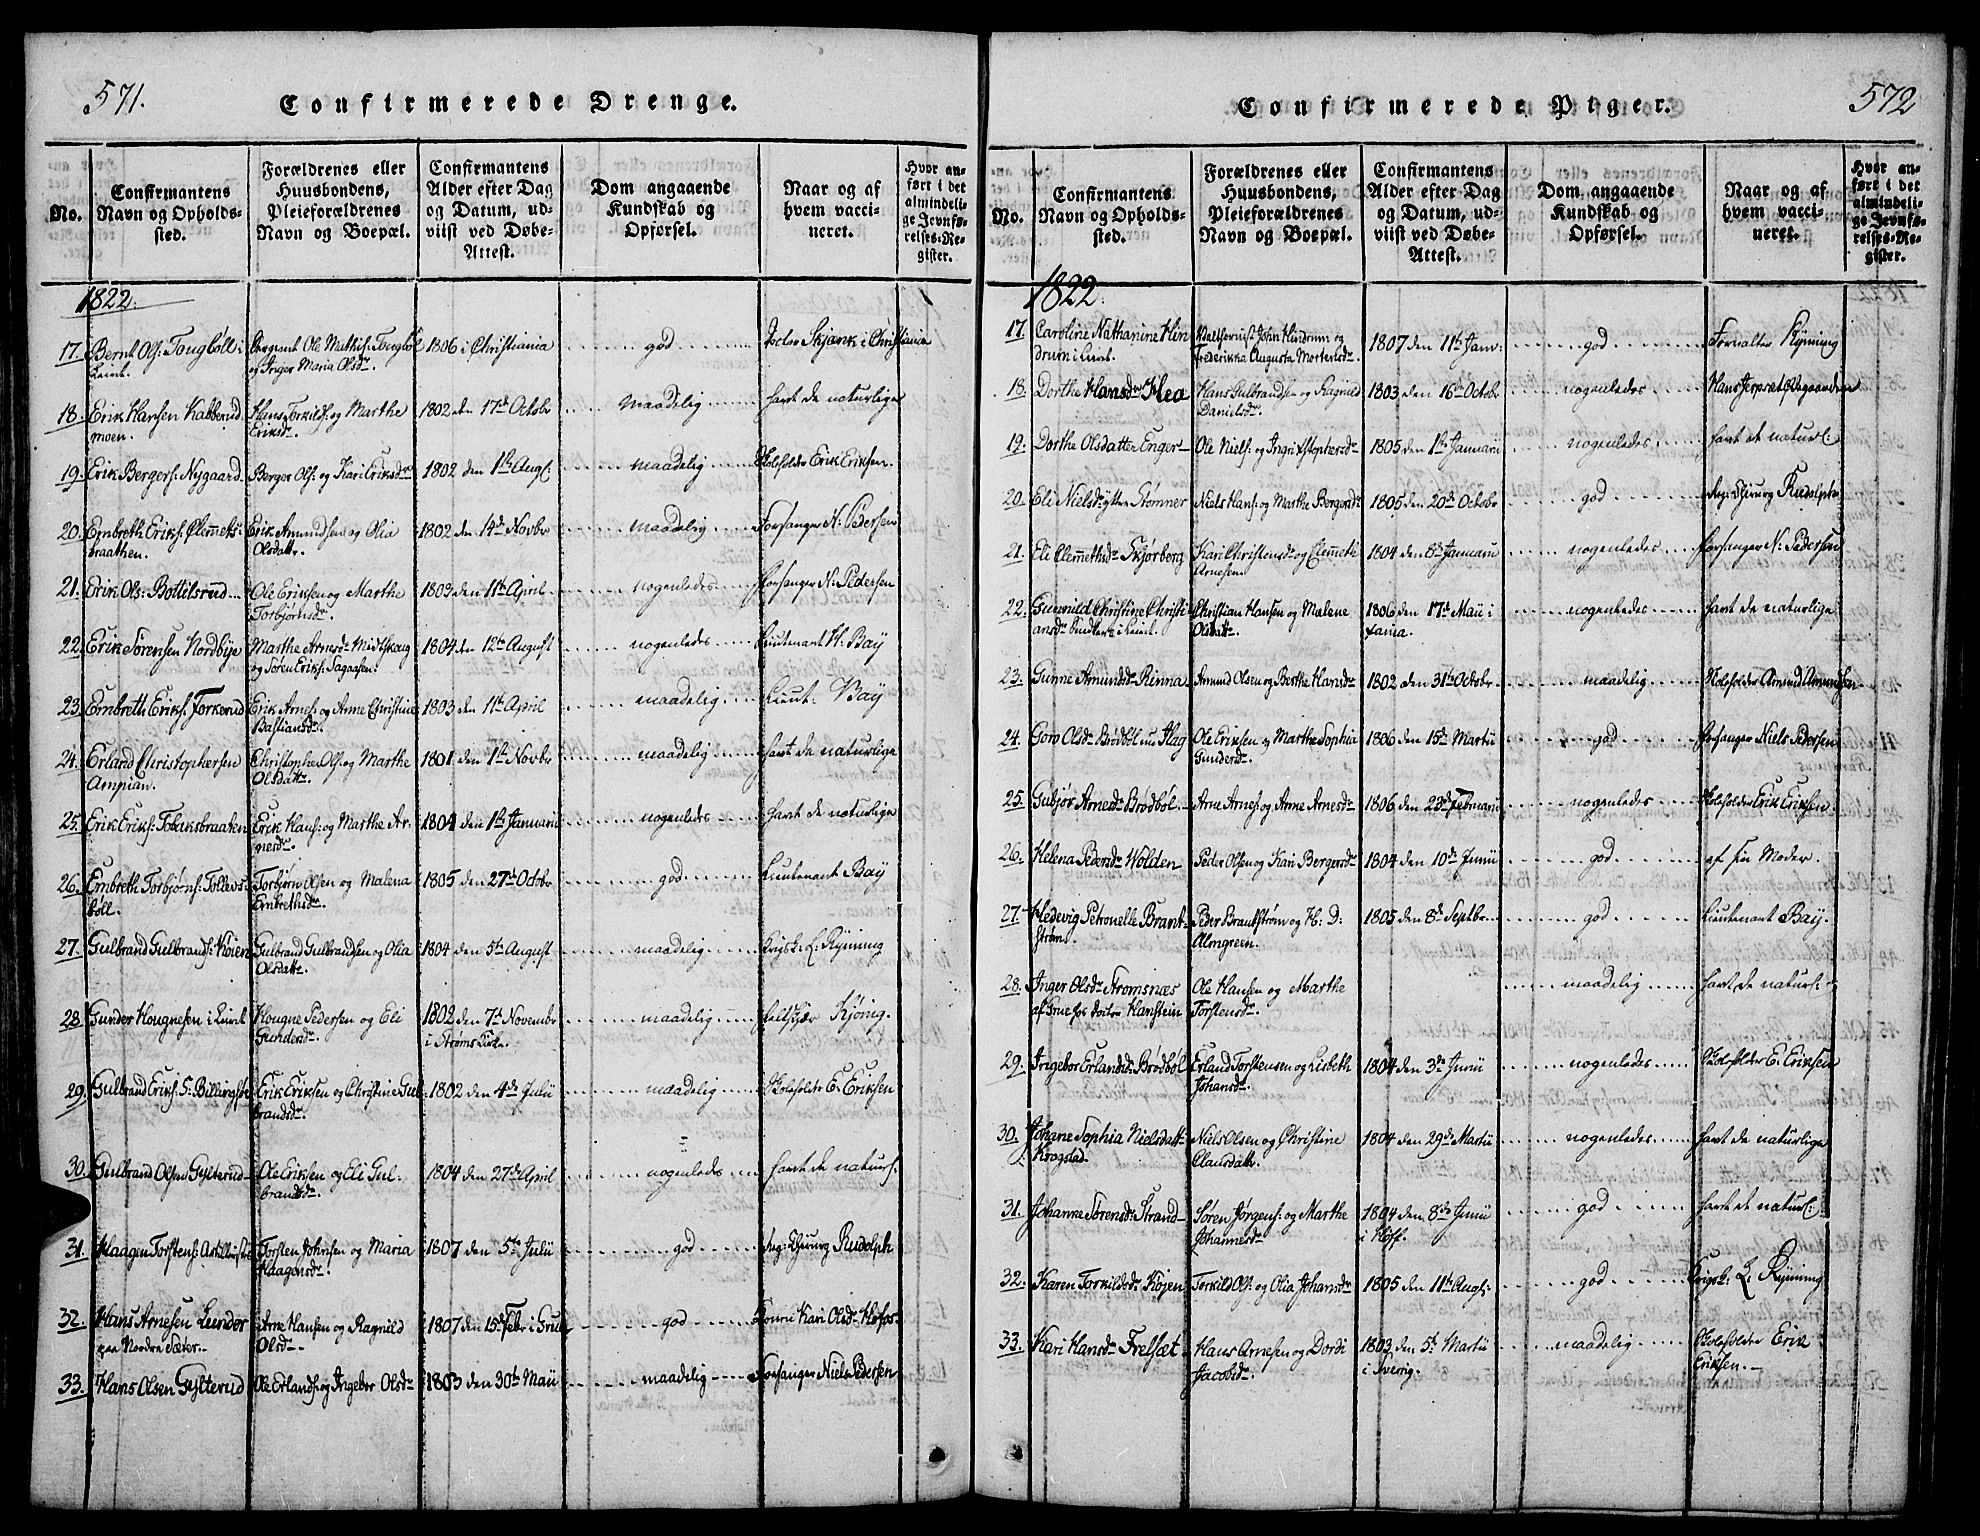 571.
Confirmerede Drenge.
No.
Confirmantens Navn og Opholds-sted.
Forældrenes eller Huusbondens, Pleieforældrenes Navn og Boepæl.
Confirmantens Alder efter Dag og Datum, ud-viist ved Døbe-Attest.
Dom angaaende Kundskab og Opførsel.
Naar og af hvem vacci-neret.
Hvor an-ført i det almindeli-ge Jevnfø-relses-Re-gister.
1822.
17. Bernt Ols: Tougböll i Leiret. Sergeant Ole Mathis: Tougböl og Inger Maria Olsdr. 1806 i Christiania god Doctor Skjønk i Christiania
18. Erik Hansen Kabberud moen. Hans Torkilds: og Marthe Eriksdr. 1802 den 17de Octobr maadelig havt de naturlige
19. Erik Bergers: Nygaard Berger Ols: og Kari Eriksdr 1802 den 1ste Augs: maadelig Skoleholder Erik Eriksen.
20. Embreth Eriks: Clemets-braathen. Erik Amundsen og Olia Olsdattr. 1802 den 14de Novbr maadelig Forsanger N: Pedersen
21. Erik Ols: Bottilsrud Ole Eriksen og Marthe Torbjörnsdr. 1803 den 11te April nogenledes Forsanger N: Pedersen
22. Erik Sörensen Nordbye Marthe Arnesdr Midtskoug og Sören Eriks: Sagaasen: 1804 den 12te August nogenledes Lieutenant H. Bay
23. Embreth Eriks: Torkerud Erik Arnes: og Anne Christine Bastiansdr. 1803 den 11te April maadelig Lieut: Bay
24. Erland Christophersen Ampian. Christopher Ols: og Marthe Olsdattr. 1801 den 1ste Novbr maadelig havt de naturlige
25. Erik Eriks: Tobaksbraaten Erik Hans: og Marthe Ar-nesdr. 1804 den 1ste Januarii nogenledes havt de naturlige
26. Embreth Torbjörns: Tollevs-böll. Torbjörn Olsen og Malena Embrethsdr. 1805 den 27de Octobr god Lieutenant Bay
27. Gulbrand Gulbrands: Köien Gulbrand Gulbrandsen og Olia Olsdattr. 1804 den 5te August maadelig Krigsk: L. Rynning
28. Gunder Hougnesen i Leiret Hougne Pedersen og Eli Gundersdr. 1802 den 7de November i Ströms Kirke. maadelig Feltskjær Kjönig.
29. Gulbrand Eriks: S: Billingsbe Erik Eriksen og Christine Gul-brandsdr. 1802 den 4de Julii maadelig Skoleholder E. Eriksen
30. Gulbrand Olsen Gylterud Ole Eriksen og Eli Gul-brandsdr. 1804 den 27de April nogenledes havt de naturl:
31. Haagen Torstens: Torsten Johnsen og Maria Haagensdr. 1807 den 5te Julii god Reg: Chirurg Rudolph
32. Hans Arnesen Lunder paa Nordre Sæter. Arne Hansen og Ragnild Olsdr. 1807 den 15de Febr i Grue god Konni Kari Olsdr Hofos
33. Hans Olsen Gylterud Ole Erlands: og Ingebor Olsdr 1803 den 30te Maii maadelig Forsanger Niels Pedersen
572
Confirmerede Piger.
No.
Confirmantens Navn og Opholds-sted.
Forældrenes eller Huusbondens, Pleieforældrenes Navn og Boepæl.
Confirmantens Alder efter Dag og Datum, ud-viist ved Døbe-Attest.
Dom angaaende Kundskab og Opførsel.
Naar og af hvem vacci-neret.
Hvor an-ført i det almindeli-ge Jevnfø-relses-Re-gister.
1822.
17. Caroline Nathanine Hin drum i Leiret. John Hindrum og Frederikka Augusta Mortensdr. 1807 den 11te Janv: god Forvalter Rynning
18. Dorthe Hansdr Moe Hans Gulbrandsen og Ragnild Danielsdr. 1803 den 16de Octobr nogenledes Hans Jerpset
19. Dorthe Olsdatter Enger Ole Niels: og Ingri Xstophersdr 1805 den 1ste Januarii nogenledes havt de naturl:
20. Eli Nielsdatter Stömner Niels Hans: og Marthe Bergersdr 1805 den 20de Octobr god Reg: Chirurg Rudolph
21. Eli Clemethsdr Skjörberg Kari Christensdr og Clemeth Arnesen. 1804 den 8de Januarii nogenledes Forsanger N: Pedersen
22. Gunnild Christine Christi-ansdr i Leiret. Christian Hansen og Malene Olsdattr. 1806 den 17de Maii i nogenledes havt de naturlige
23. Gunne Amundsdr Rinna Amund Olsen og Berthe Hansdr 1802 den 31te Octobr maadelig Skoleholder Amund Amundsen
24. Goro Olsdr Brödböl nu Hag Ole Eriksen og Marthe Sophia Gundersdr. 1806 den 15de Martii god Forsanger Niels Pedersen
25. Gubjör Arnesdr Brödböl Arne Arnes: og Anne Arnesdr 1806 den 23de Februarii nogenledes Skoleholder Erik Eriksen
26. Helena Pedersdr Wolden Peder Olsen og Kari Bergersdr 1804 den 10de Junii god af sin Moder.
27. Hedevig Petronelle Brant-ström. Peder Brantström og H: D: Almgreen. 1805 den 8de Septbr. god Lieutenant Bay.
28. Inger Olsdr Strömsnæs af Grue hos Doctor Hanstein Ole Hansen og Marthe Torstensdr. maadelig havt de naturl:
29. Ingebor Erlandsd: Brödböl Erland Torstensen og Lisbeth Johansdr. 1804 den 3de Junii nogenledes Skoleholder E. Eriksen
30. Johane Sophia Nielsdattr Krogstad. Niels Olsen og Christine Clausdattr. 1804 den 29de Martii nogenledes havt de naturlige
31. Johanne Sörensdr Strand Sören Jörgens: og Marthe Johannesdr. 1804 den 8de Junii i Hoff. god havt de naturl:
32. Karen Torkildsdr Köjen Torkild Ols: og Olia Johansdr 1805 den 11te Augs: god Krigsk: L. Rynning
33. Kari Hansdr Frelsæt Hans Arnesen og Dordi Jacobsdr. 1803 den 5te Martii i Sverig. maadelig Skoleholder Erik Eriksen.